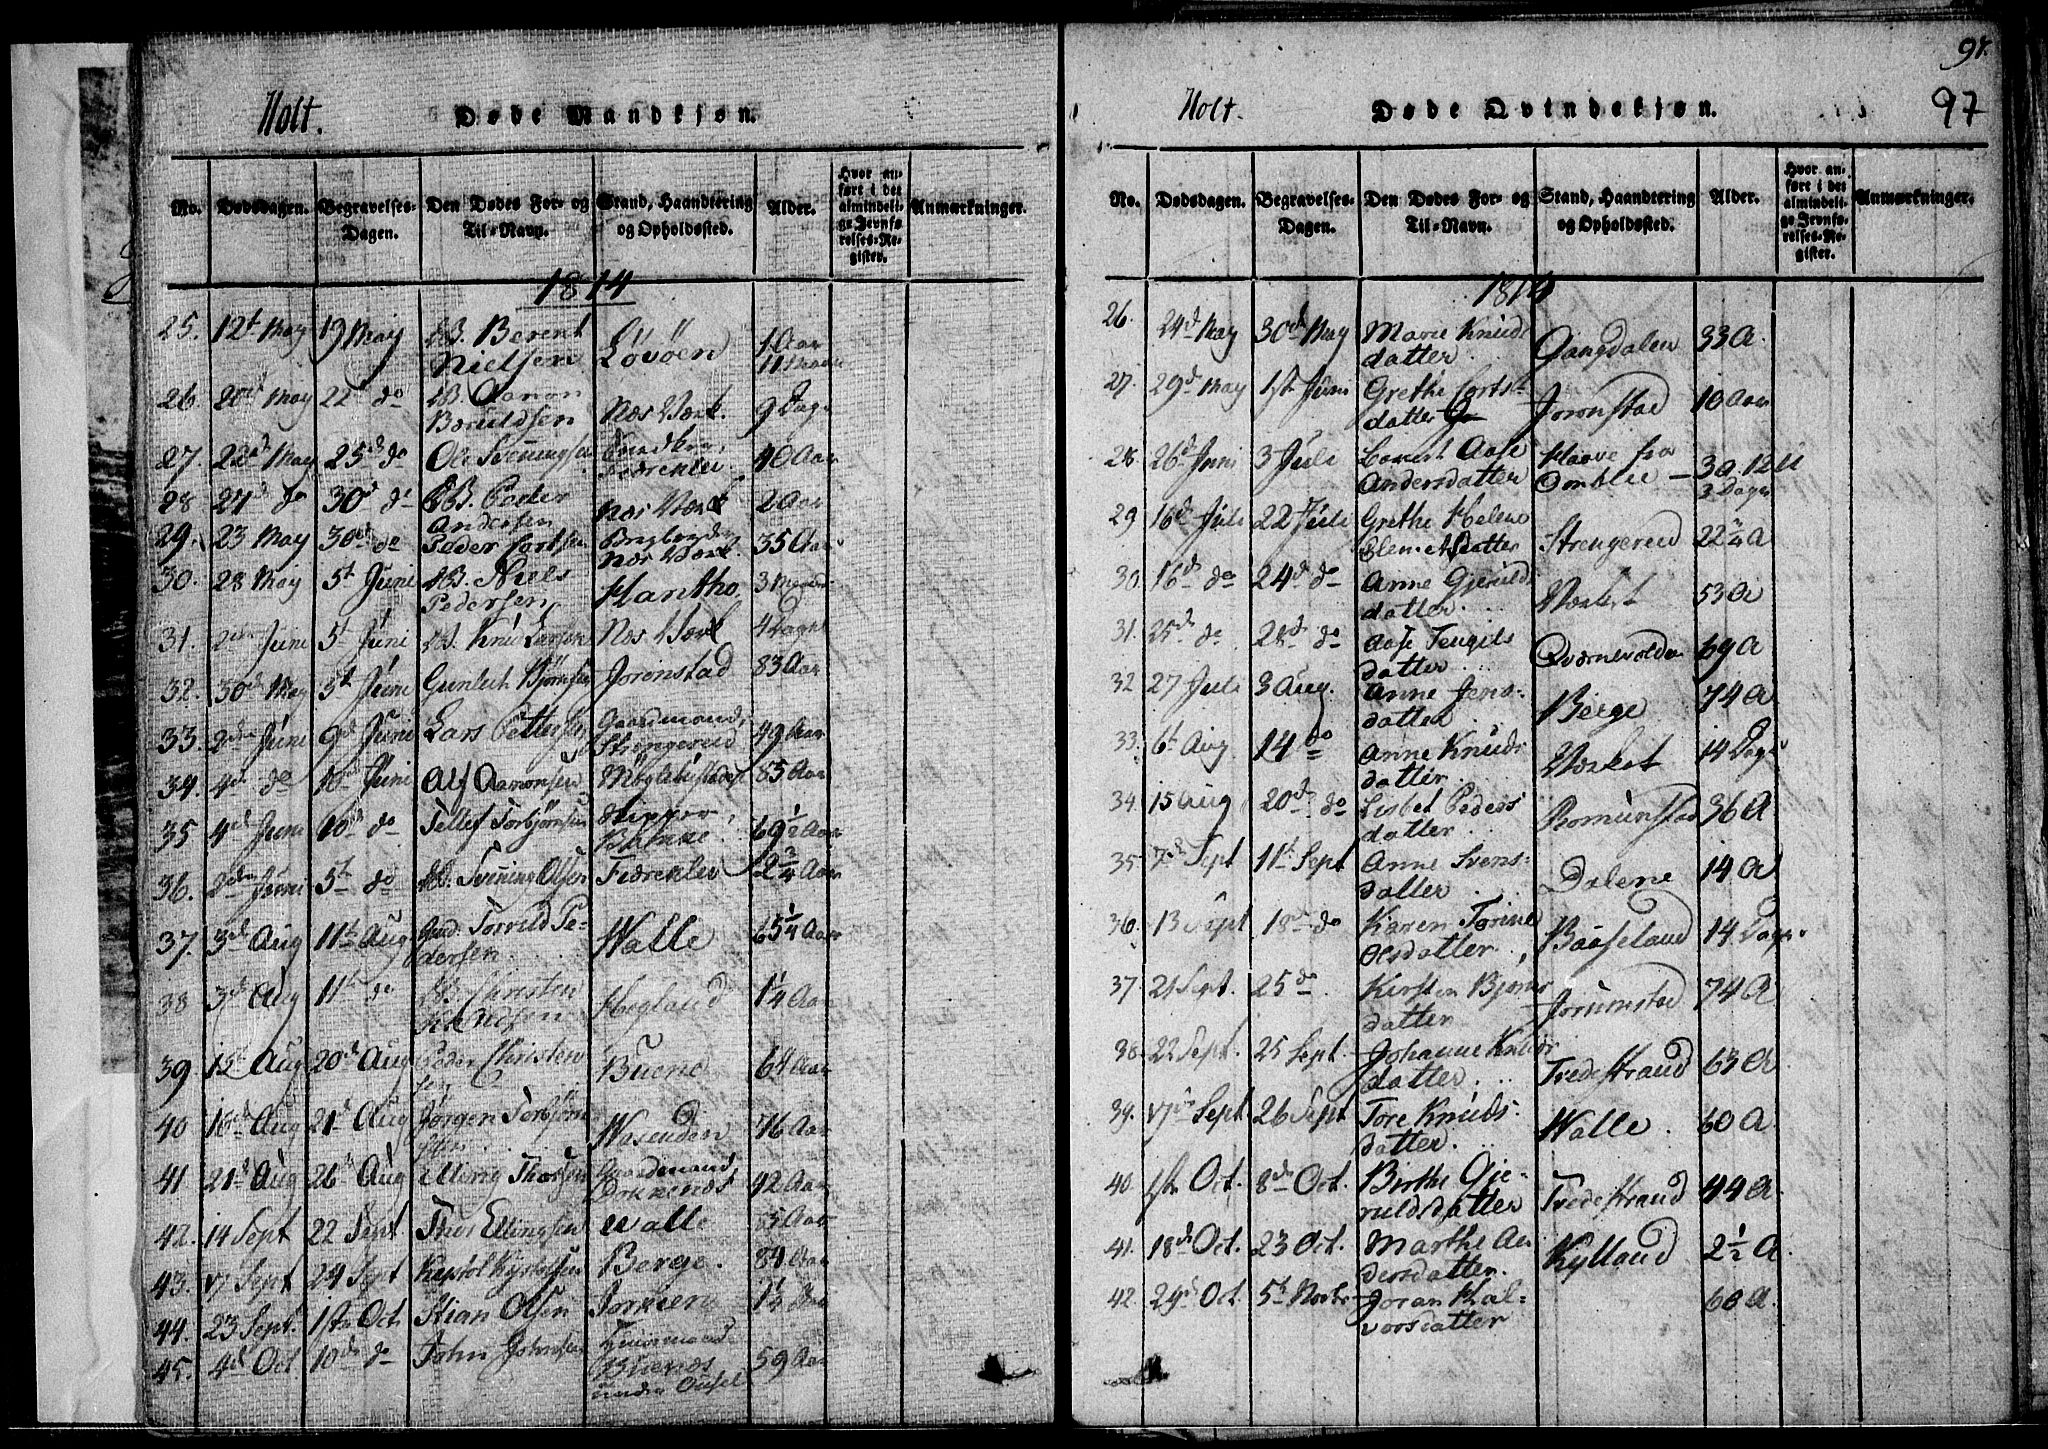 Holt.
Døde Mandkjøn.
No. Dødsdagen. Begravelses-Dagen. Den Dødes For- og Til-Navn. Stand, Haandtering og Opholdssted. Alder. Hvor anført i det almindelige Jevnførelses-Register. Anmærkninger.
1814
25. 12t May 19 May Berent Nielsen Lövöen 1 Aar 11 Maan
26. 20d May 22 do Aanon Baruldsen Næs Værk. 9 Dage
27. 22d May 25d do Ole Svenningsen 40 Aar
28 27d do 30d do Peder Andersen Næs Værk 2 Aar
29. 23 May 30d do Peder Cortsen Næs Værk. 35 Aar
30. 28 May 5t Juni Niels Pedersen Hantho 3 Maan
31. 2den Juni 5t Juni Knud Larsen Næs Værk 4 Dage
32. 30d May 5t Juni Gunleik Bjørnsen Joronstad 83 Aar
33. 2den Juni 9d Juni Lars Pettersen Gaardmand, Strengereid 49 Aar
34. 4d do 10d Juni Alf Aanonsen 85 Aar
35 4d Juni 10d do Tellef Torbjørnsen 69 1/2 Aar
36. 2den Juni 5t do Svening Olsen Fiærekilen 2 3/4 Aar
37. 3d Aug 11t Aug Torruld Pedersen Walle 65 1/4 Aar
38 3d Aug 11t do Christen Knudsen Hogland 1 1/4 Aar
39 15t Aug 20d Aug Peder Christensen Buene 64 Aar
40 16d Aug 21d Aug Jørgen Torbjørnsen Wasenden 76 Aar
41 21d Aug 26d Aug Elling Thorsen Gaardmand, Dokkenæs 42 Aar
42. 14 Sept 22 Sept Thor Ellingsen Walle 85 Aar
43. 17 Sept 24 Sept Berge. 84 Aar
44. 23 Sept. 1ste Oct. Stian Olsen 1 1/4 Aar
45. 4d Oct 10d do John Johnsen 59 Aar
97.
97
Holt.
Døde Qvindekjøn.
No. Dødsdagen. Begravelses-Dagen. Den Dødes For- og Til-Navn. Stand, Haandtering og Opholdssted. Alder. Hvor anført i det almindelige Jevnførelses-Register. Anmærkninger.
1814
26. 24d May 30d May Marie Knudsdatter Gangdalen 33 A.
27. 29d May 1ste Juni Grethe Cortsdatter Joronstad 10 Aar
28 26d Juni 3 Juli Aase Andersdatter Haave fra Omblie 3 Dage
29 16d Juli 22 Juli Grethe Helene Clemetsdatter Strengereid 22 1/4 A
30. 16d do 24d do Anne Gjeruldsdatter Værket 53 A
31. 25d do 28d do Aase Tengilsdatter Qværnevolden 69 A
32 27 Juli 3 Aug. Anne Jensdatter Berge 74 A
33. 6t Aug 14 do Anne Knudsdatter Værket 14 Dage
34 15 Aug 20d do Lisbet Pedersdatter Romunstad 36 A
35 7d Sept 11t Sept Anne Svensdatter Dalene 14 A
36. 13 Sept 18d do Karen Torine Olsdatter Baaseland 14 Dage
37. 21 Sept. 25 do Kirsten Bjørnsdatter Jorunstad 74 A
38. 22 Sept. 25 Sept. Johanne Knudsdatter Tvedestrand 63 A
39. 17d Sept 26 Sept Tore Knudsdatter Walle. 60 A
40 1ste Oct. 8d Oct. Birthe Gjeruldsdatter Tvedestrand 44 A
41. 18d Oct. 23 Oct. Marthe Andersdatter Kylland 2 1/2 A
42. 29d Oct. 5t Novbr Joran Halvorsdatter 60 A.